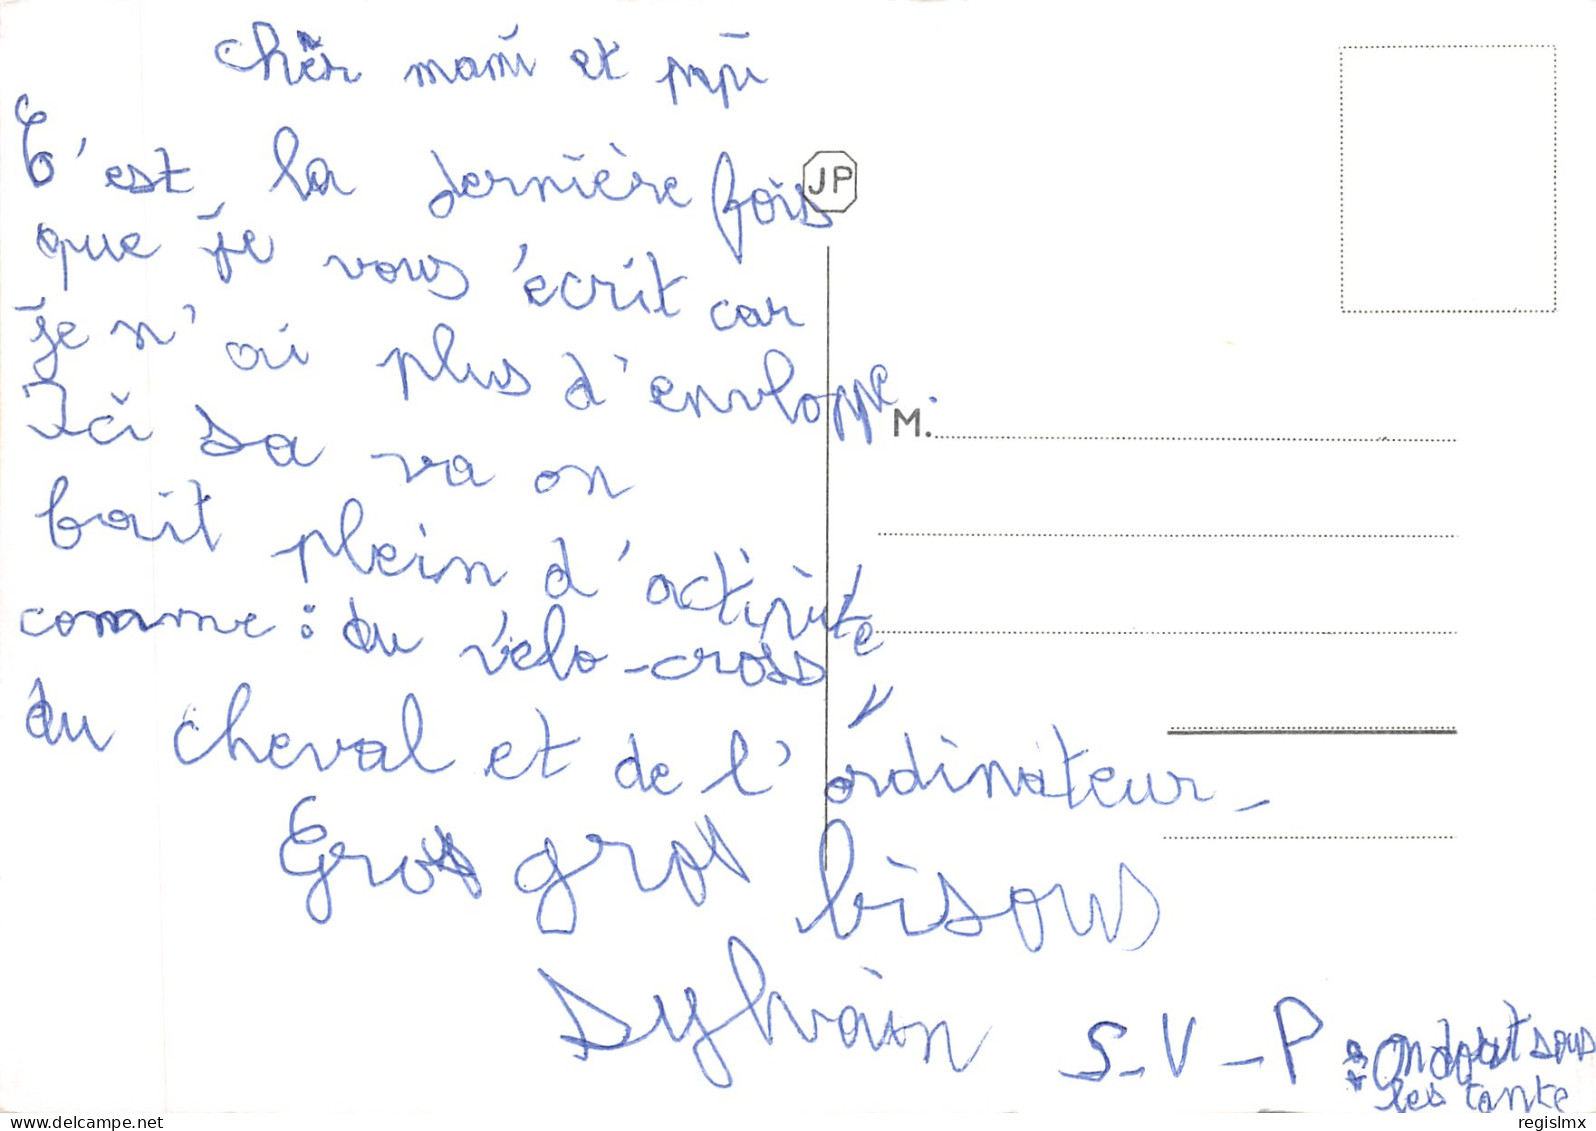 chèr mami et papi
C'est la dernière fois
JP
que je vous écrit car
je n'ai plus d'enveloppe.
M.
Ici sa va on
fait plein d'activité
comme : du vélo-cross
du cheval et de l'ordinateur -
Gros gros bisous
Sylvain
S-V-P : On dort sous
les tante
www.delcampe.net
regislmx